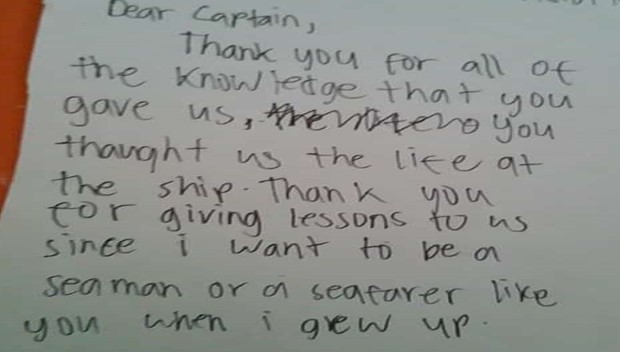 Dear Captain,
Thank you for all of
the knowledge that you
gave us, you
thaught us the life at
the ship. Thank you
for giving lessons to us
since i want to be a
seaman or a seafarer like
you when i grew up.